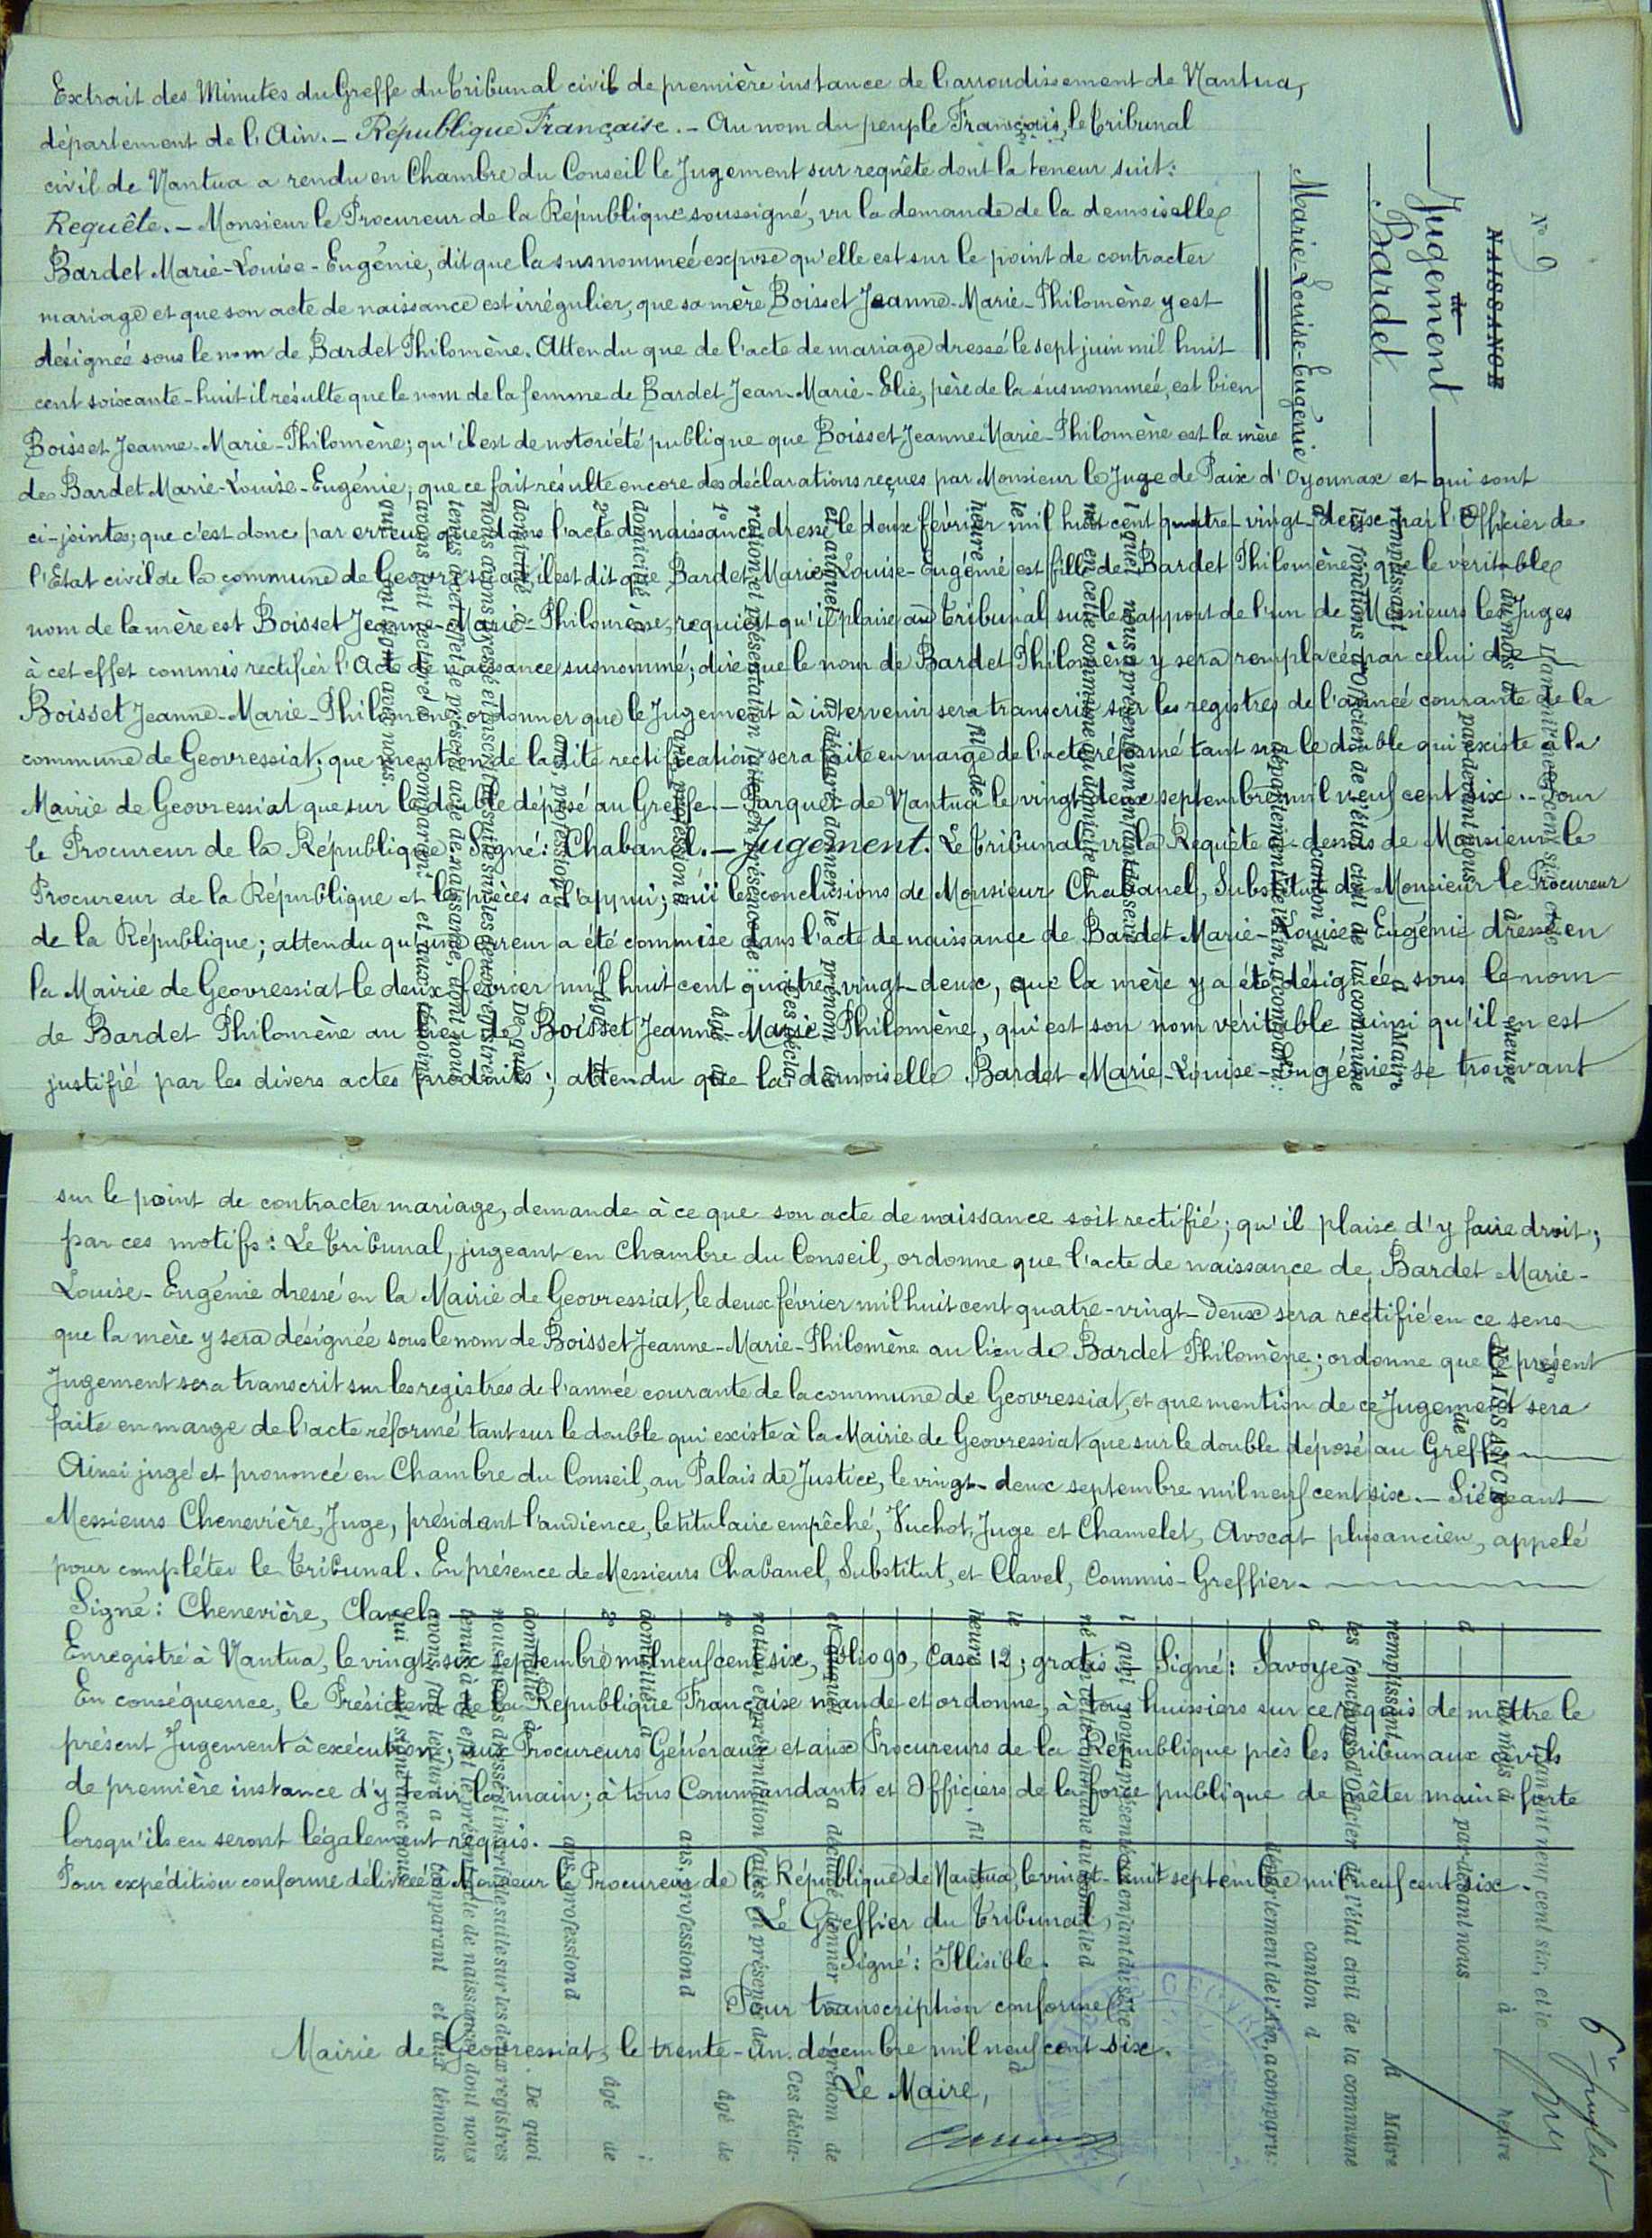 Extrait des Minutes du Greffe du Tribunal civil de première instance de l'arrondissement de Nantua,
département de l'Ain. — République Française. — Au nom du peuple Français, le Tribunal
civil de Nantua a rendu en Chambre du Conseil le Jugement sur requête dont la teneur suit:
Requête. — Monsieur le Procureur de la République soussigné, vu la demande de la demoiselle
Bardet Marie-Louise-Eugénie, dit que la susnommée expose qu'elle est sur le point de contracter
mariage et que son acte de naissance est irrégulier, que sa mère Boisset Jeanne-Marie-Philomène y est
désignée sous le nom de Bardet Philomène. Attendu que de l'acte de mariage dressé le sept juin mil huit
cent soixante-huit il résulte que le nom de la femme de Bardet Jean-Marie-Elie, père de la susnommée, est bien
Boisset Jeanne-Marie-Philomène; qu'il est de notoriété publique que Boisset Jeanne Marie-Philomène est la mère
de Bardet Marie-Louise-Eugénie; que ce fait résulte encore des déclarations reçues par Monsieur le Juge de Paix d'Oyonnax et qui sont
ci-jointes; que c'est donc par erreur que dans l'acte de naissance dressé le deux février mil huit cent quatre-vingt-deux par l'Officier de
l'Etat civil de la commune de Geovressiat il est dit que Bardet Marie-Louise-Eugénie est fille de Bardet Philomène; que le véritable
nom de la mère est Boisset Jeanne-Marie-Philomène, requiert qu'il plaise au Tribunal sur le rapport de l'un de Messieurs les Juges
à cet effet commis rectifier l'Acte de naissance susnommé; dire que le nom de Bardet Philomène y sera remplacé par celui de
Boisset Jeanne-Marie-Philomène, ordonner que le Jugement à intervenir sera transcrit sur les registres de l'année courante de la
commune de Geovressiat; que mention de la dite rectification sera faite en marge de l'acte réformé tant sur le double qui existe à la
Mairie de Geovressiat que sur le double déposé au Greffe. — Parquet de Nantua le vingt-deux septembre mil neuf cent six. — Pour
le Procureur de la République. Signé: Chabanel. — Jugement. Le Tribunal, vu la Requête ci-dessus de Monsieur le
Procureur de la République et les pièces à l'appui; ouï les conclusions de Monsieur Chabanel, Substitut de Monsieur le Procureur
de la République; attendu qu'une erreur a été commise dans l'acte de naissance de Bardet Marie-Louise-Eugénie dressé en
la Mairie de Geovressiat le deux février mil huit cent quatre-vingt-deux, que la mère y a été désignée sous le nom
de Bardet Philomène au lieu de Boisset Jeanne-Marie-Philomène, qui est son nom véritable ainsi qu'il en est
justifié par les divers actes produits; attendu que la demoiselle Bardet Marie-Louise-Eugénie se trouvant
N° 9
NAISSANCE
de
Jugement
Bardet
Marie-Louise-Eugénie
sur le point de contracter mariage, demande à ce que son acte de naissance soit rectifié; qu'il plaise d'y faire droit;
par ces motifs: Le Tribunal, jugeant en Chambre du Conseil, ordonne que l'acte de naissance de Bardet Marie-
Louise-Eugénie dressé en la Mairie de Geovressiat, le deux février mil huit cent quatre-vingt-deux sera rectifié en ce sens
que la mère y sera désignée sous le nom de Boisset Jeanne-Marie-Philomène au lieu de Bardet Philomène; ordonne que le présent
Jugement sera transcrit sur les registres de l'année courante de la commune de Geovressiat, et que mention de ce Jugement sera
faite en marge de l'acte réformé tant sur le double qui existe à la Mairie de Geovressiat que sur le double déposé au Greffe.
Ainsi jugé et prononcé en Chambre du Conseil, au Palais de Justice, le vingt-deux septembre mil neuf cent six. — Siégeant
Messieurs Chenevière, Juge, président l'audience, le titulaire empêché, Vuchot, Juge et Chamelet, Avocat plus ancien, appelé
pour compléter le Tribunal. En présence de Messieurs Chabanel, Substitut, et Clavel, Commis-Greffier.
Signé: Chenevière, Clavel.
Enregistré à Nantua, le vingt-six septembre mil neuf cent six, folio 90, Case 12; gratis — Signé: Savoye
En conséquence, le Président de la République Française mande et ordonne, à tous huissiers sur ce requis de mettre le
présent Jugement à exécution; aux Procureurs Généraux et aux Procureurs de la République près les Tribunaux civils
de première instance d'y tenir la main; à tous Commandants et Officiers de la force publique de prêter main-forte
lorsqu'ils en seront légalement requis.
Pour expédition conforme délivrée à Monsieur le Procureur de la République de Nantua, le vingt-huit septembre mil neuf cent six.
Le Greffier du Tribunal,
Signé: Illisible.
Pour transcription conforme
Mairie de Geovressiat, le trente-un décembre mil neuf cent six.
Le Maire,